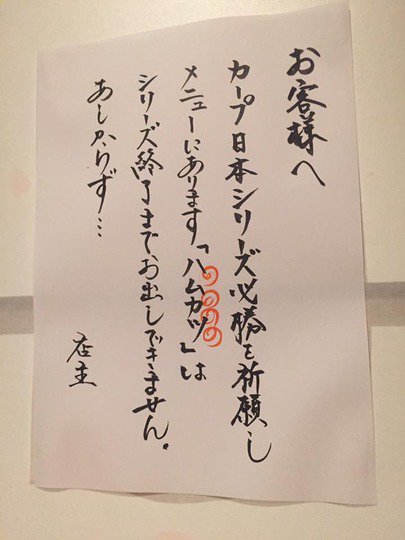 お客様へ
カープ日本シリーズ必勝を祈願し
メニューにあります「ハムカツ」は
シリーズ終了までお出しできません。
あしからず…
店主